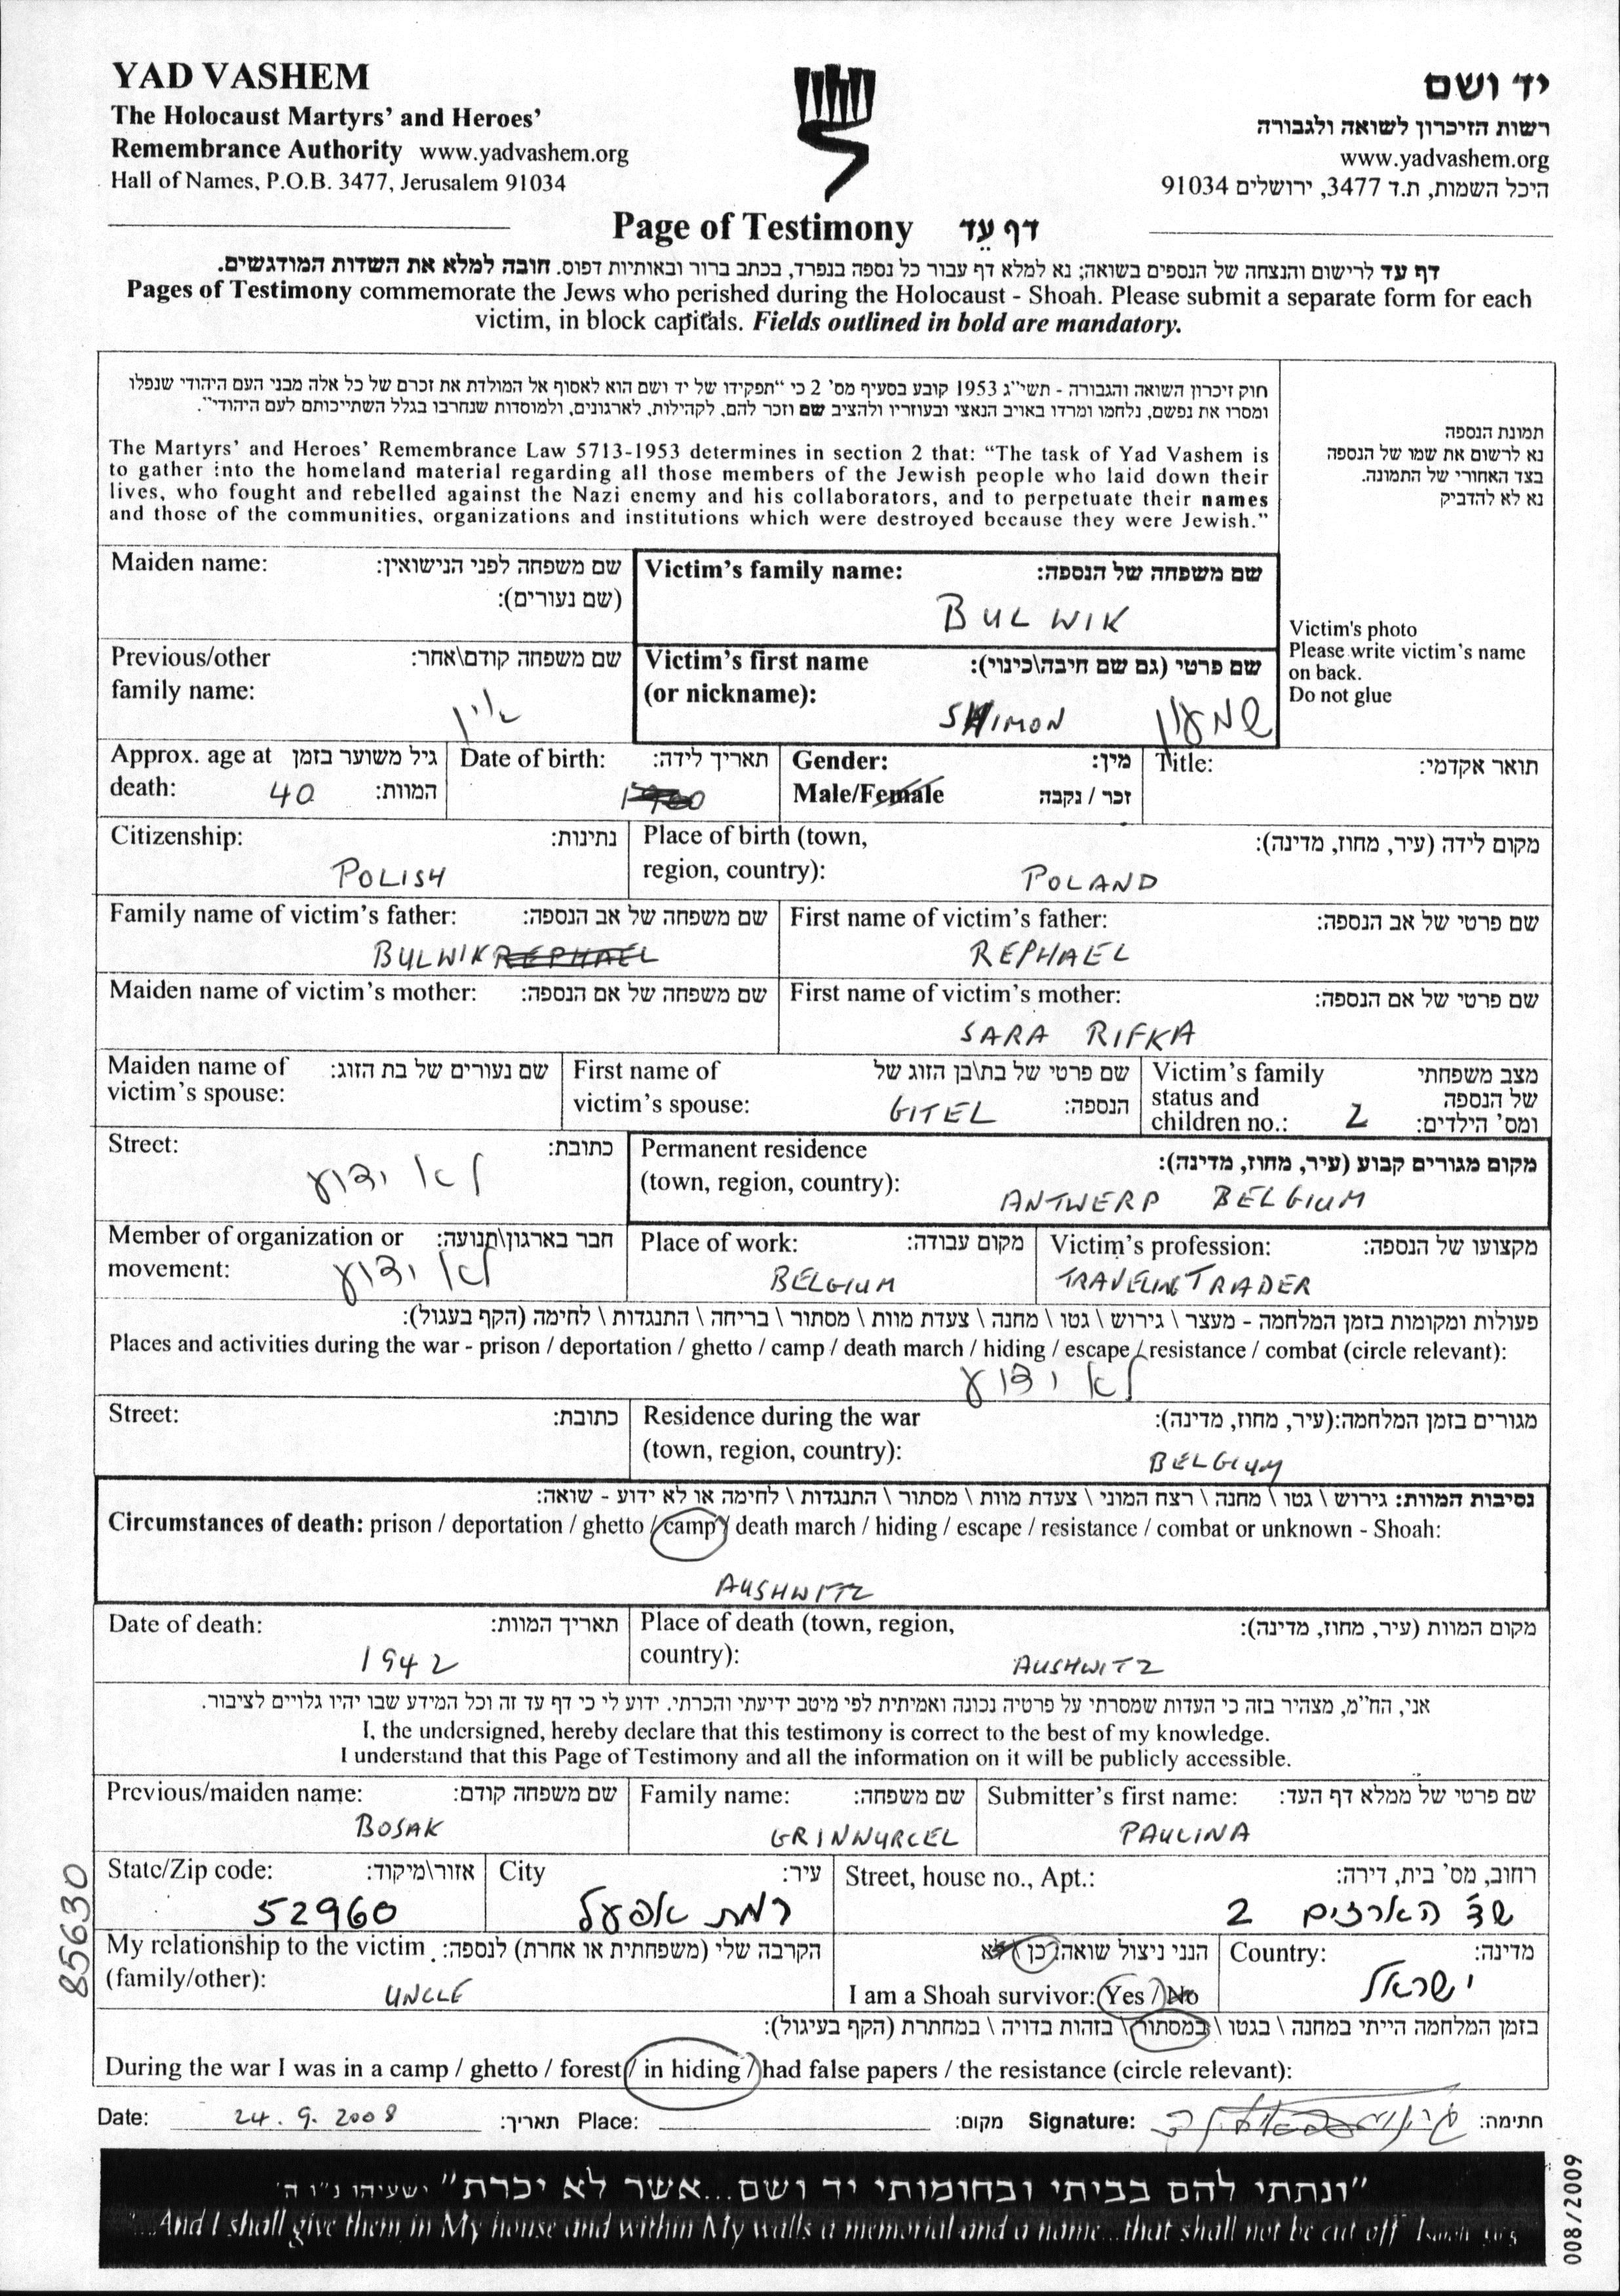 YAD VASHEM
The Holocaust Martyrs' and Heroes'
Remembrance Authority www.yadvashem.org
Hall of Names, P.O.B. 3477, Jerusalem 91034
יד ושם
רשות הזיכרון לשואה ולגבורה
www.yadvashem.org
היכל השמות, ת.ד 3477, ירושלים 91034
Page of Testimony דף עד
דף עד לרישום והנצחה של הנספים בשואה; נא למלא דף עבור כל נספה בנפרד, בכתב ברור ובאותיות דפוס. חובה למלא את השדות המודגשים.
Pages of Testimony commemorate the Jews who perished during the Holocaust - Shoah. Please submit a separate form for each
victim, in block capitals. Fields outlined in bold are mandatory.
חוק זיכרון השואה והגבורה - תשי"ג 1953 קובע בסעיף מס' 2 כי "תפקידו של יד ושם הוא לאסוף אל המולדת את זכרם של כל אלה מבני העם היהודי שנפלו
ומסרו את נפשם, נלחמו ומרדו באויב הנאצי ובעוזריו ולהציב שם וזכר להם, לקהילות, לארגונים, ולמוסדות שנחרבו בגלל השתייכותם לעם היהודי".
The Martyrs' and Heroes' Remembrance Law 5713-1953 determines in section 2 that: "The task of Yad Vashem is
to gather into the homeland material regarding all those members of the Jewish people who laid down their
lives, who fought and rebelled against the Nazi enemy and his collaborators, and to perpetuate their names
and those of the communities, organizations and institutions which were destroyed because they were Jewish."
תמונת הנספה
נא לרשום את שמו של הנספה
בצד האחורי של התמונה.
נא לא להדביק
Victim's photo
Please write victim's name
on back.
Do not glue
Maiden name: שם משפחה לפני הנישואין:
(שם נעורים):
Victim's family name: שם משפחה של הנספה:
BULWIK
Previous/other שם משפחה קודם\אחר:
family name:
אין
Victim's first name שם פרטי (גם שם חיבה\כינוי):
(or nickname):
SHIMON שמעון
Approx. age at גיל משוער בזמן
death: 40 המוות:
Date of birth: תאריך לידה:
1900
Gender: מין:
Male/Female זכר / נקבה
Title: תואר אקדמי:
Citizenship: נתינות:
POLISH
Place of birth (town, מקום לידה (עיר, מחוז, מדינה):
region, country):
POLAND
Family name of victim's father: שם משפחה של אב הנספה:
BULWIK REPHAEL
First name of victim's father: שם פרטי של אב הנספה:
REPHAEL
Maiden name of victim's mother: שם משפחה של אם הנספה:
First name of victim's mother: שם פרטי של אם הנספה:
SARA RIFKA
Maiden name of שם נעורים של בת הזוג:
victim's spouse:
First name of שם פרטי של בת\בן הזוג של
victim's spouse: GITEL הנספה:
Victim's family מצב משפחתי
status and של הנספה
children no.: 2 ומס' הילדים:
Street: כתובת:
לא ידוע
Permanent residence מקום מגורים קבוע (עיר, מחוז, מדינה):
(town, region, country):
ANTWERP BELGIUM
Member of organization or חבר בארגון\תנועה:
movement: לא ידוע
Place of work: מקום עבודה:
BELGIUM
Victim's profession: מקצועו של הנספה:
TRAVELING TRADER
פעולות ומקומות בזמן המלחמה - מעצר \ גירוש \ גטו \ מחנה \ צעדת מוות \ מסתור \ בריחה \ התנגדות \ לחימה (הקף בעגול):
Places and activities during the war - prison / deportation / ghetto / camp / death march / hiding / escape / resistance / combat (circle relevant):
לא ידוע
Street: כתובת:
Residence during the war מגורים בזמן המלחמה:(עיר, מחוז, מדינה):
(town, region, country):
BELGIUM
נסיבות המוות: גירוש \ גטו \ מחנה \ רצח המוני \ צעדת מוות \ מסתור \ התנגדות \ לחימה או לא ידוע - שואה:
Circumstances of death: prison / deportation / ghetto / camp / death march / hiding / escape / resistance / combat or unknown - Shoah:
AUSHWITZ
Date of death: תאריך המוות:
1942
Place of death (town, region, מקום המוות (עיר, מחוז, מדינה):
country):
AUSHWITZ
אני, הח"מ, מצהיר בזה כי העדות שמסרתי על פרטיה נכונה ואמיתית לפי מיטב ידיעתי והכרתי. ידוע לי כי דף עד זה וכל המידע שבו יהיו גלויים לציבור.
I, the undersigned, hereby declare that this testimony is correct to the best of my knowledge.
I understand that this Page of Testimony and all the information on it will be publicly accessible.
Previous/maiden name: שם משפחה קודם:
BOSAK
Family name: שם משפחה:
GRINWURCEL
Submitter's first name: שם פרטי של ממלא דף העד:
PAULINA
State/Zip code: אזור\מיקוד:
52960
City עיר:
רמת אפעל
Street, house no., Apt.: רחוב, מס' בית, דירה:
שד' הארזים 2
My relationship to the victim הקרבה שלי (משפחתית או אחרת) לנספה:
(family/other):
UNCLE
הנני ניצול שואה: כן \ לא
I am a Shoah survivor: Yes / No
Country: מדינה:
ישראל
בזמן המלחמה הייתי במחנה \ בגטו \ במסתור \ בזהות בדויה \ במחתרת (הקף בעיגול):
During the war I was in a camp / ghetto / forest / in hiding / had false papers / the resistance (circle relevant):
Date: 24.9.2008 תאריך: Place: מקום: Signature: חתימה:
"ונתתי להם בביתי ובחומותי יד ושם...אשר לא יכרת" ישעיהו נ"ו ה'
"...And I shall give them in My house and within My walls a memorial and a name...that shall not be cut off"
85630
008/2009